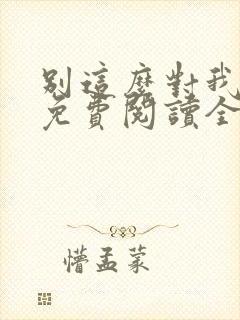 別這麼對我
免費閱讀全
懵孟蒙